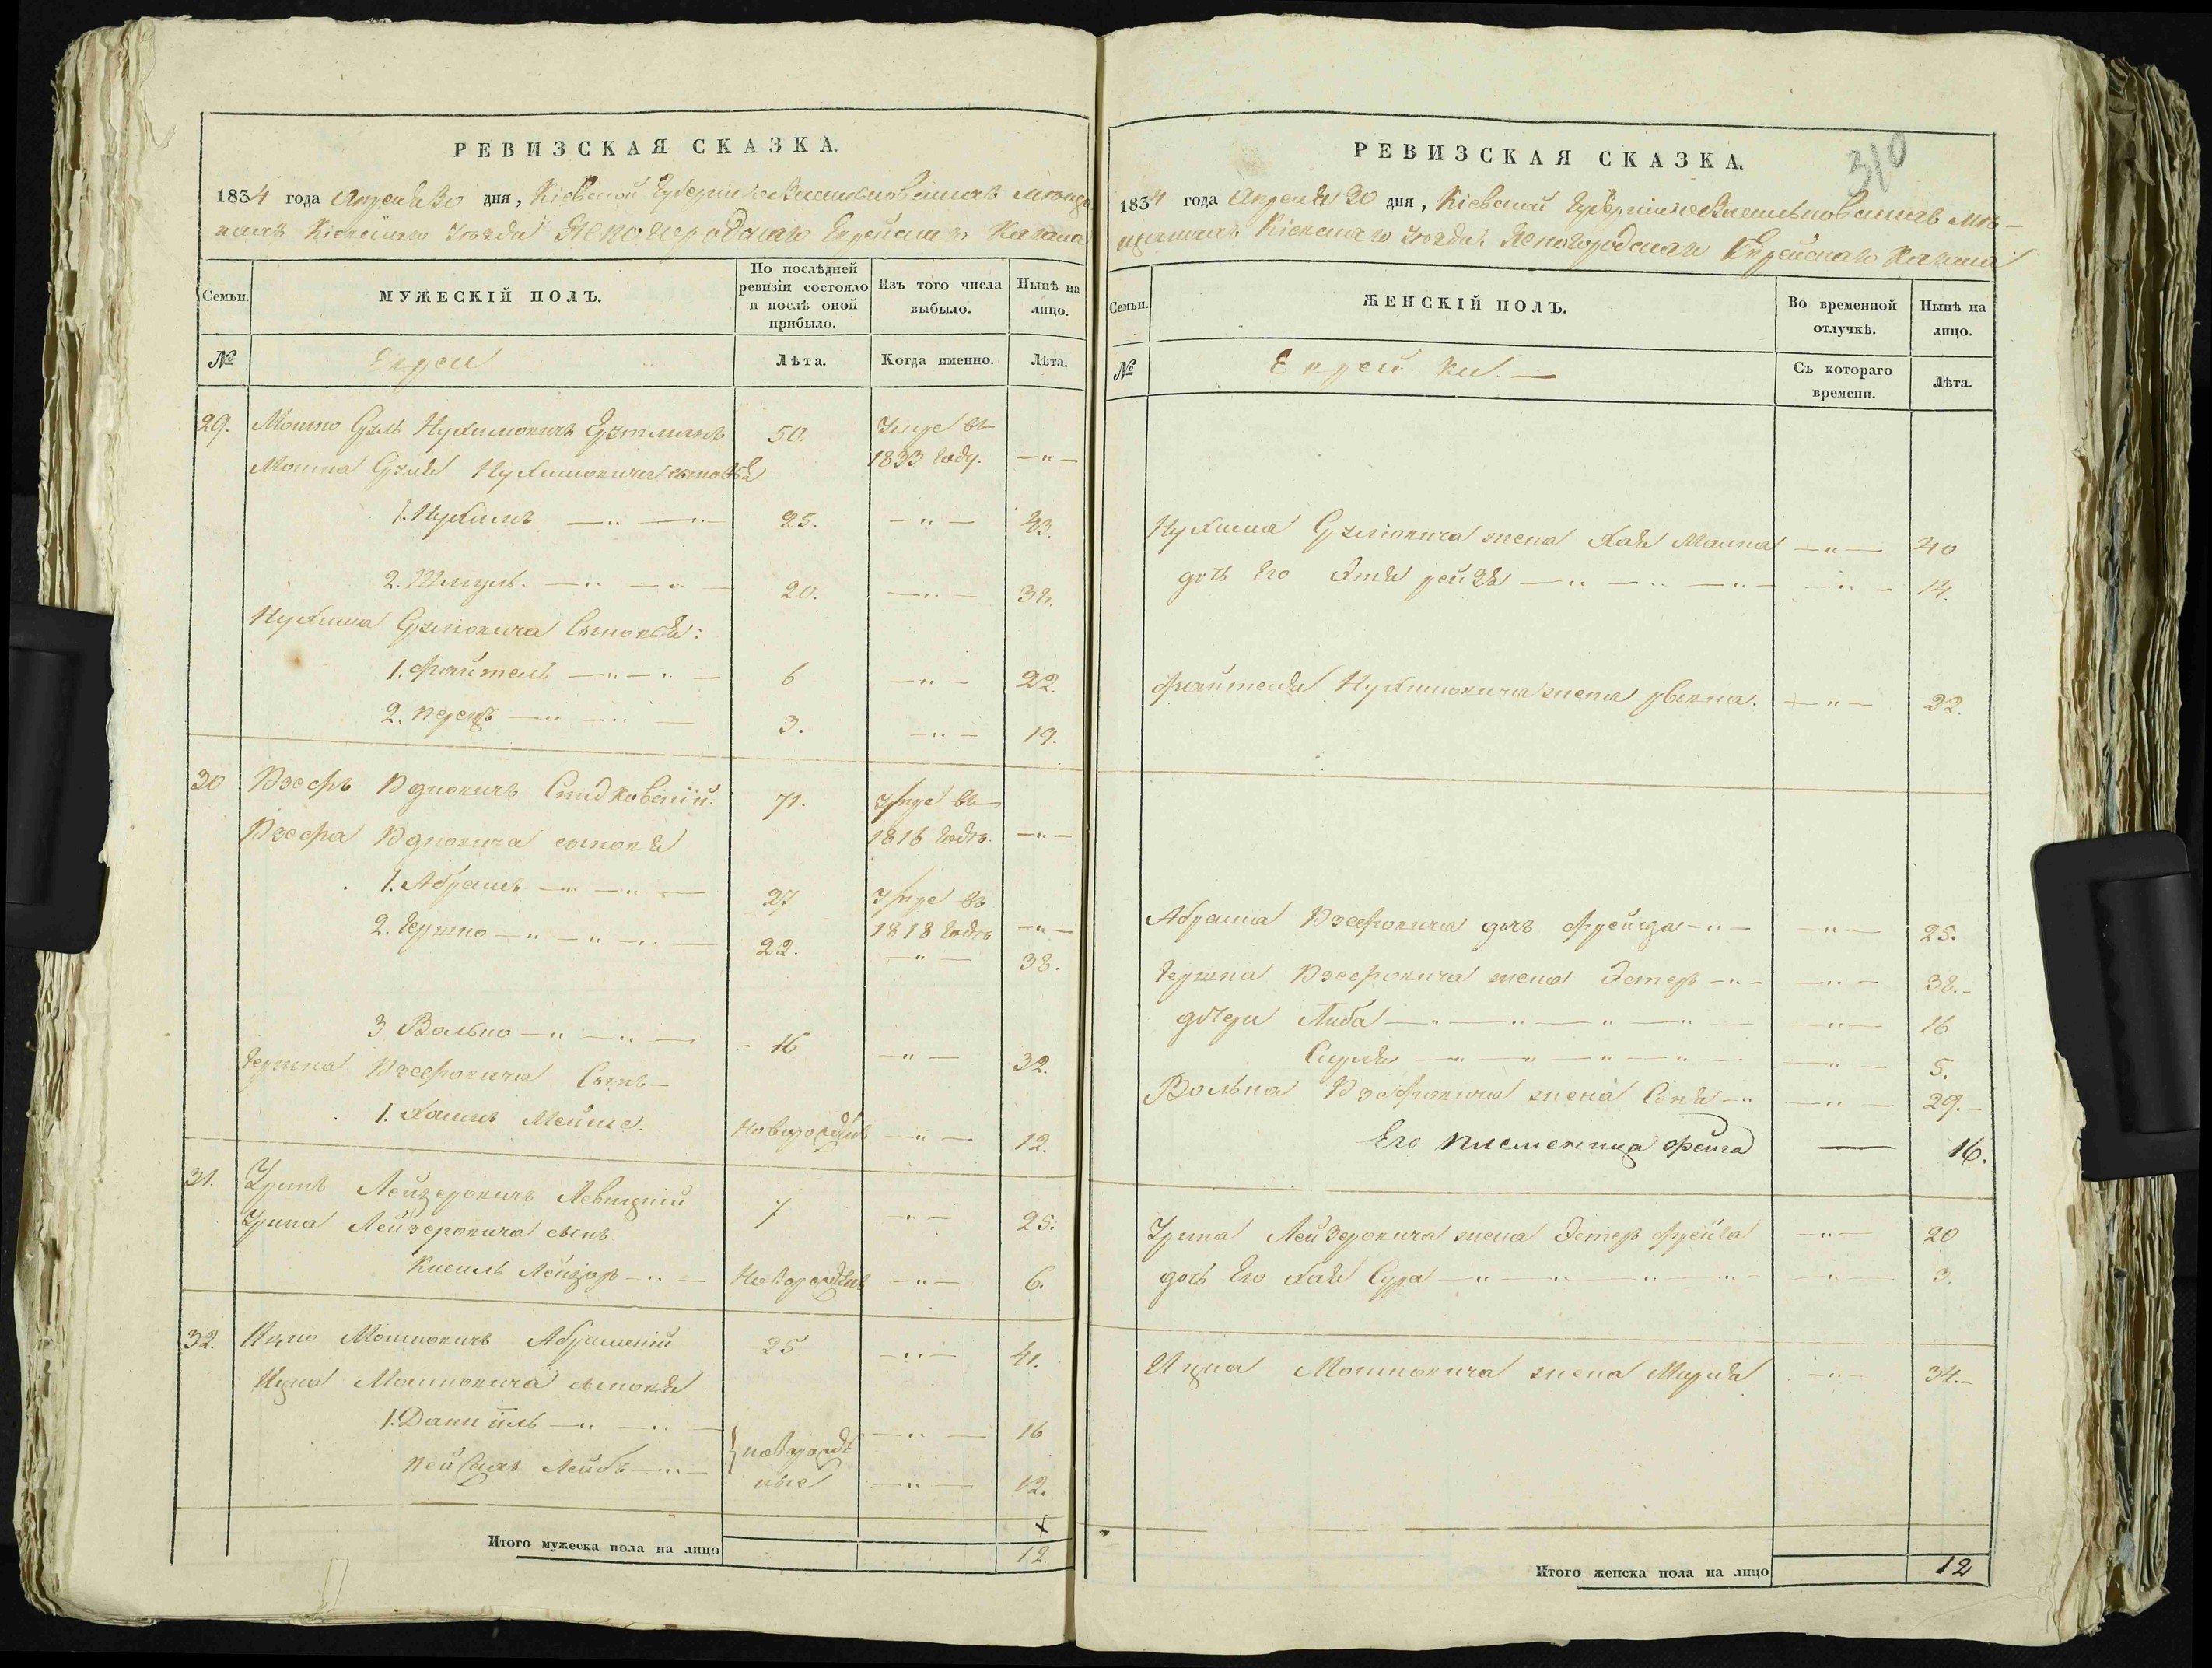 РЕВИЗСКАЯ СКАЗКА.
1834 года Апреля 30 дня, Кіевской Губерніи о Васильковскихъ мѣща
нахъ Кіевскаго уѣзда Ясногородскаго Еврейскаго Кагала
Семьи. МУЖЕСКІЙ ПОЛЪ. По послѣдней ревизіи состояло и послѣ оной прибыло. Изъ того числа выбыло. Нынѣ на лицо.
№ Евреи Лѣта. Когда именно. Лѣта.
29. Мошко Сруль Нухимовичъ 50. Умре въ
Мошка Сруля Нухимовича сыновья 1833 году. —"—
1. Нухимъ —"— —"— 25. —"— 43.
2. Шмуль. —"— —"— 20. —"— 38.
Нухима Срулiовича Сыновья:
1. Файтель —"—"— 6 —"— 22.
2. Перецъ —"— —"— 3. —"— 19.
30 Іосфъ Сидковскій. 71. Умре въ
Іосфа сыновья 1816 годѣ. —"—
1. Абрамъ —"—"— 27 Умре въ
1818 годѣ —"—
2. Гершко —"—"—"— 22. —"— 38.
3 Волько —"—"— 16 —"— 32.
Гершка Іосфовича Сынъ —
1. Хаимъ Мейше. Новорожденъ —"— 12.
31. Урин Лейзеровичъ Левицкій 7 —"— 25.
Лейзеровича сынъ
Кисиль Лейзор —"— Новорожденъ —"— 6.
32. Ицко Мошковичъ Абрамскій 25 —"— 41.
Ицка Мошковича сыновья
1. Даниіль —"— —"— } новорожден —"— 16
Пейсахъ Лейбъ —"— ные —"— 12.
Итого мужеска пола на лицо 12
РЕВИЗСКАЯ СКАЗКА.
310
1834 года Апреля 30 дня, Кіевской Губерніи о Васильковскихъ мѣ-
щанахъ Кіевскаго уѣзда Ясногородскаго Еврейскаго Кагала
Семьи. ЖЕНСКІЙ ПОЛЪ. Во временной отлучкѣ. Нынѣ на лицо.
№ Еврейки. — Съ котораго времени. Лѣта.
Нухима Срулiовича жена Хая Малка —"— 40
дочь Его рейзя —"—"—"— —"— 14.
Файтеля Нухимовича жена Ривка. —"— 22.
Абрама Іосфовича дочь Фрейда —"— —"— 25.
Гершка Іосфовича жена Эстер —"— —"— 38.-
дочери Либа —"—"—"—"— —"— 16
—"—"—"—"— —"— 5.
Волька Іосфовича жена Соня —"— —"— 29.-
Его племенница Фейга — 16.
Лейзеровича жена Эстер Фрейда —"— 20
дочь Его Хая Сура —"—"—"—"— " 3.
Ицка Мошковича жена Мирія —"— 34.-
Итого женска пола на лицо 12